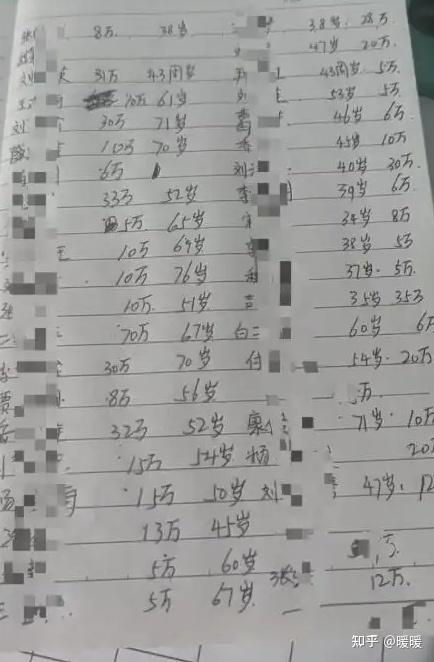 8万 38岁 38岁. 28万.
47岁 20万.
刘 31万 43周岁 43周岁. 5万.
70万 61岁 53岁 5万
刘 30万 71岁 46岁 6万
70岁 45岁 10万
6万 刘 40岁 30万
33万 52岁 李 39岁 6万
5万 65岁 34岁 8万
10万 69岁 38岁 5万
10万 76岁 37岁. 5万.
10万. 51岁 35岁 35万
70万 67岁 白 60岁 6万
30万 70岁 付 54岁. 20万
贾 8万 56岁 万.
32万 52岁 康 71岁 10万
15万 54岁 杨 20
15万 50岁 刘 47岁.
13万 45岁 万.
5万 60岁 张 12万.
5万 67岁.
知乎 @暖暖